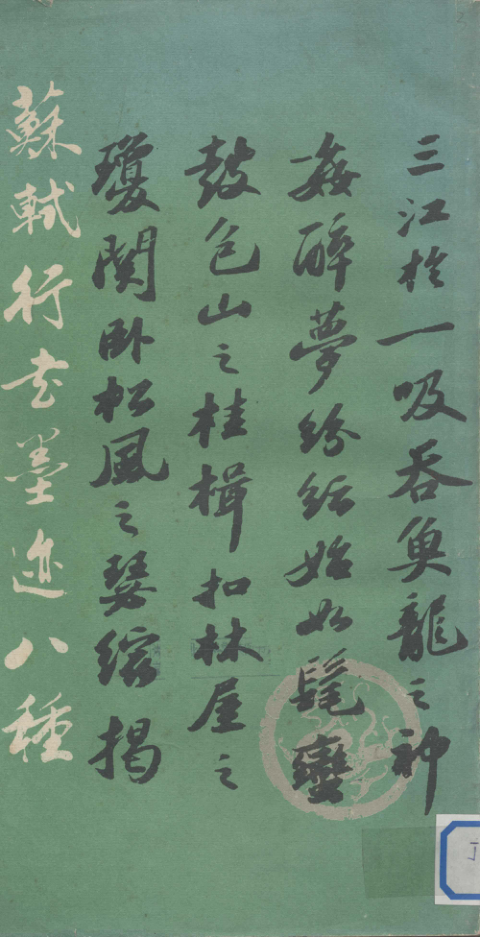 三江於一吸吞魚龍之神
姦醉夢紛紜始如髦蠻
鼓包山之桂楫扣林屋之
瓊関卧松風之瑟縮揭
蘇軾行书墨迹八種